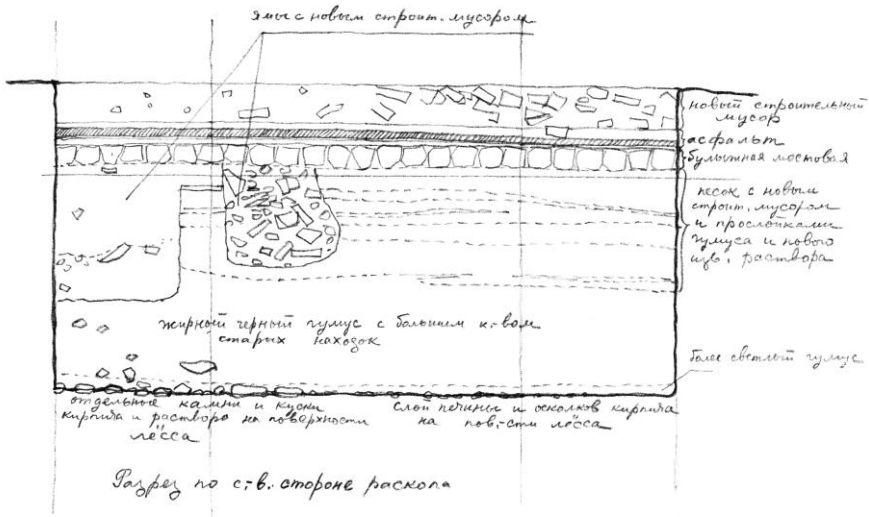 ямы с новым строит. мусором
новый строительный
мусор
асфальт
булыжная мостовая
песок с новым
строит. мусором
и прослойками
гумуса и нового
изв. раствора
жирный черный гумус с большим к-вом
старых находок
более светлый гумус
отдельные камни и куски
кирпича и раствора на поверхности
лёсса
слой печины и осколков кирпича
на пов-сти лёсса
Разрез по с-в. стороне раскопа